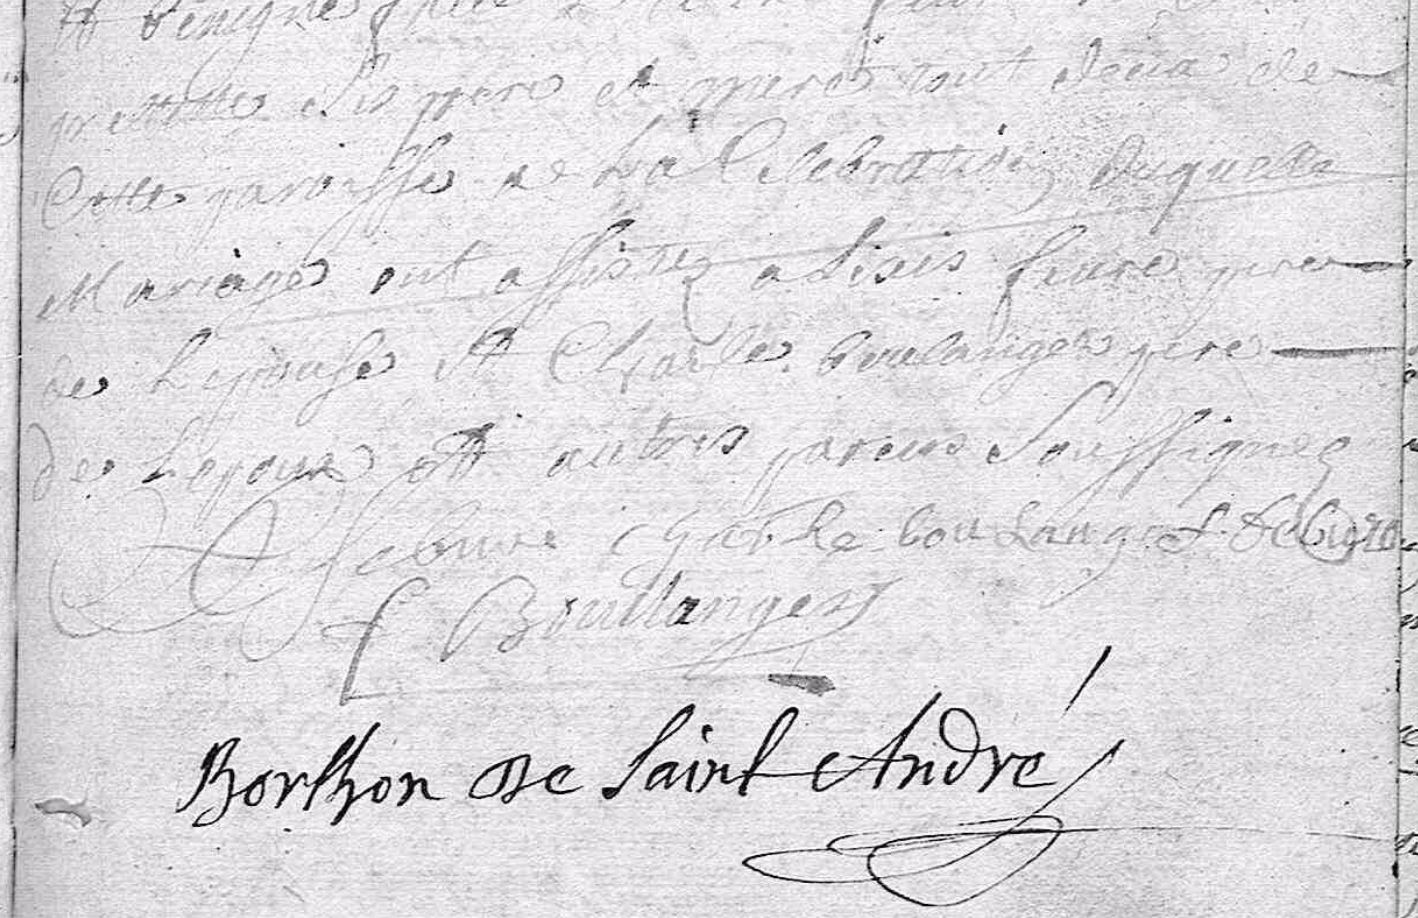 et benigne
ses pere et mere tout deux de
Cette paroisse de la Celebration duquelle
Mariage ont assistez alixis feure pere
de Lepouse et Charle boulanger pere
de Lepoux ett autres parens Soussignez
febure charle boulanger
Boullanger
Borthon De Saint André